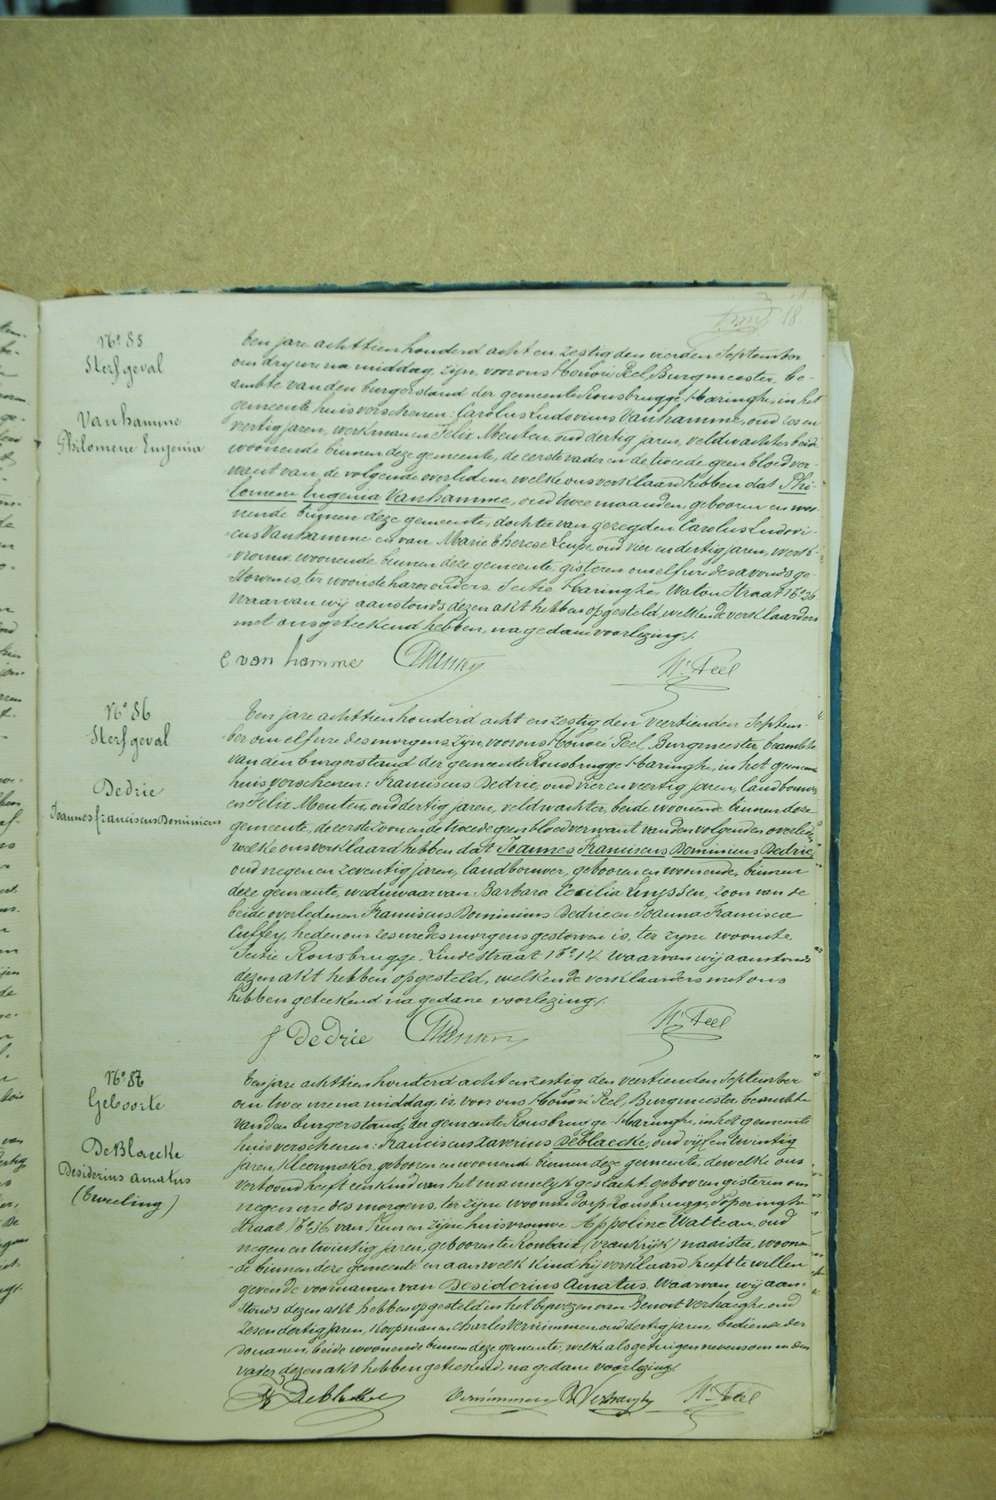 18
N° 85
Sterfgeval
Vanhamme
Philomene Eugenia
Een jare achttien honderd acht en zestig den vierden September
om dry ure na middag, zijn voor ons Honoré Peel, Burgmeester, be-
ambte van den burgerstand der gemeente Rousbrugge-Haringhe, in het
gemeente huis verschenen: Carolus Ludovicus Vanhamme, oud zes en
veertig jaren, werkman en Felix Menten, oud dertig jaren, veldwachter beide
woonende binnen deze gemeente, de eerste vader en de tweede geen bloedver-
want van de volgende overledene, welke ons verklaard hebben dat Phi-
lomene Eugenia Vanhamme, oud twee maanden, gebooren en woo-
nende binnen deze gemeente, dochter van gezegden Carolus Ludovi-
cus Vanhamme en van Marie Therese, oud vier en dertig jaren, werk-
vrouw, woonende binnen deze gemeente, gisteren om elf ure des avonds ge-
storven is, ter woonste harer ouders, Sectie Haringhe, Watou Straat N° 26
Waarvan wij aanstonds dezen akt hebben opgesteld, welken de verklaarders
met ons geteekend hebben, na gedane voorlezing.
C van hamme Menten H. Peel
N° 86
Sterfgeval
Dedrie
Joannes franciscus Dominicus
Een jare achttien honderd acht en zestig den veertienden Septem-
ber om elf ure des morgens, zijn voor ons Honoré Peel, Burgmeester, beambte
van den burgerstand der gemeente Rousbrugge-Haringhe, in het gemeente
huis verschenen: Franciscus Dedrie, oud vier en veertig jaren, landbouwer
en Felix Menten, oud dertig jaren, veldwachter, beide woonende binnen deze
gemeente, de eerste zoon en de tweede geen bloedverwant van den volgenden overleden
welke ons verklaard hebben dat Joannes Franciscus Dominicus Dedrie,
oud negen en zeventig jaren, landbouwer, gebooren en woonende, binnen
deze gemeente, weduwaar van Barbara Cecilia, zoon van de
beide overledenen Franciscus Dominicus Dedrie en Joanna Francisca
Cuffey, heden om zes ure des morgens gestorven is, ter zyne woonste
Sectie Rousbrugge, Lindestraat N° 14. Waarvan wij aanstonds
dezen akt hebben opgesteld, welken de verklaarders met ons
hebben geteekend na gedane voorlezing.
f Dedrie Menten H. Peel
N° 87
Geboorte
DeBlaecke
Desiderius amatus
(Tweeling)
Een jare achttien honderd acht en zestig den veertienden September
om twee ure na middag, is voor ons Honoré Peel, Burgmeester, beambte
van den burgerstand, der gemeente Rousbrugge-Haringhe, in het gemeente
huis verschenen: Franciscus Xaverius Deblaecke, oud vijf en twintig
jaren, kleermaker, gebooren en woonende binnen deze gemeente, dewelke ons
vertoond heeft een kind van het mannelijk geslacht, gebooren gisteren om
negen ure des morgens, ter zijne woonste dorp Rousbrugge, Poperinghe
straat N° 16, van hem en zijne huisvrouwe Appoline Watteau, oud
negen en twintig jaren, gebooren te Roubaix (vrankrijk) naaister, woonen-
de binnen deze gemeente en aan welk kind hij verklaard heeft te willen
geven de voornamen van Desiderius Amatus. Waarvan wij aan-
stonds dezen akt hebben opgesteld in het bijwezen van Benoit Verhaeghe, oud
zes en dertig jaren, koopman en Charles Vernimmen, oud dertig jaren bediende der
douanen, beide woonende binnen deze gemeente, welke als getuigen nevens ons en den
vader dezen akt hebben geteekend na gedane voorlezing.
Deblaecke Vernimmen B Verhaeghe H. Peel